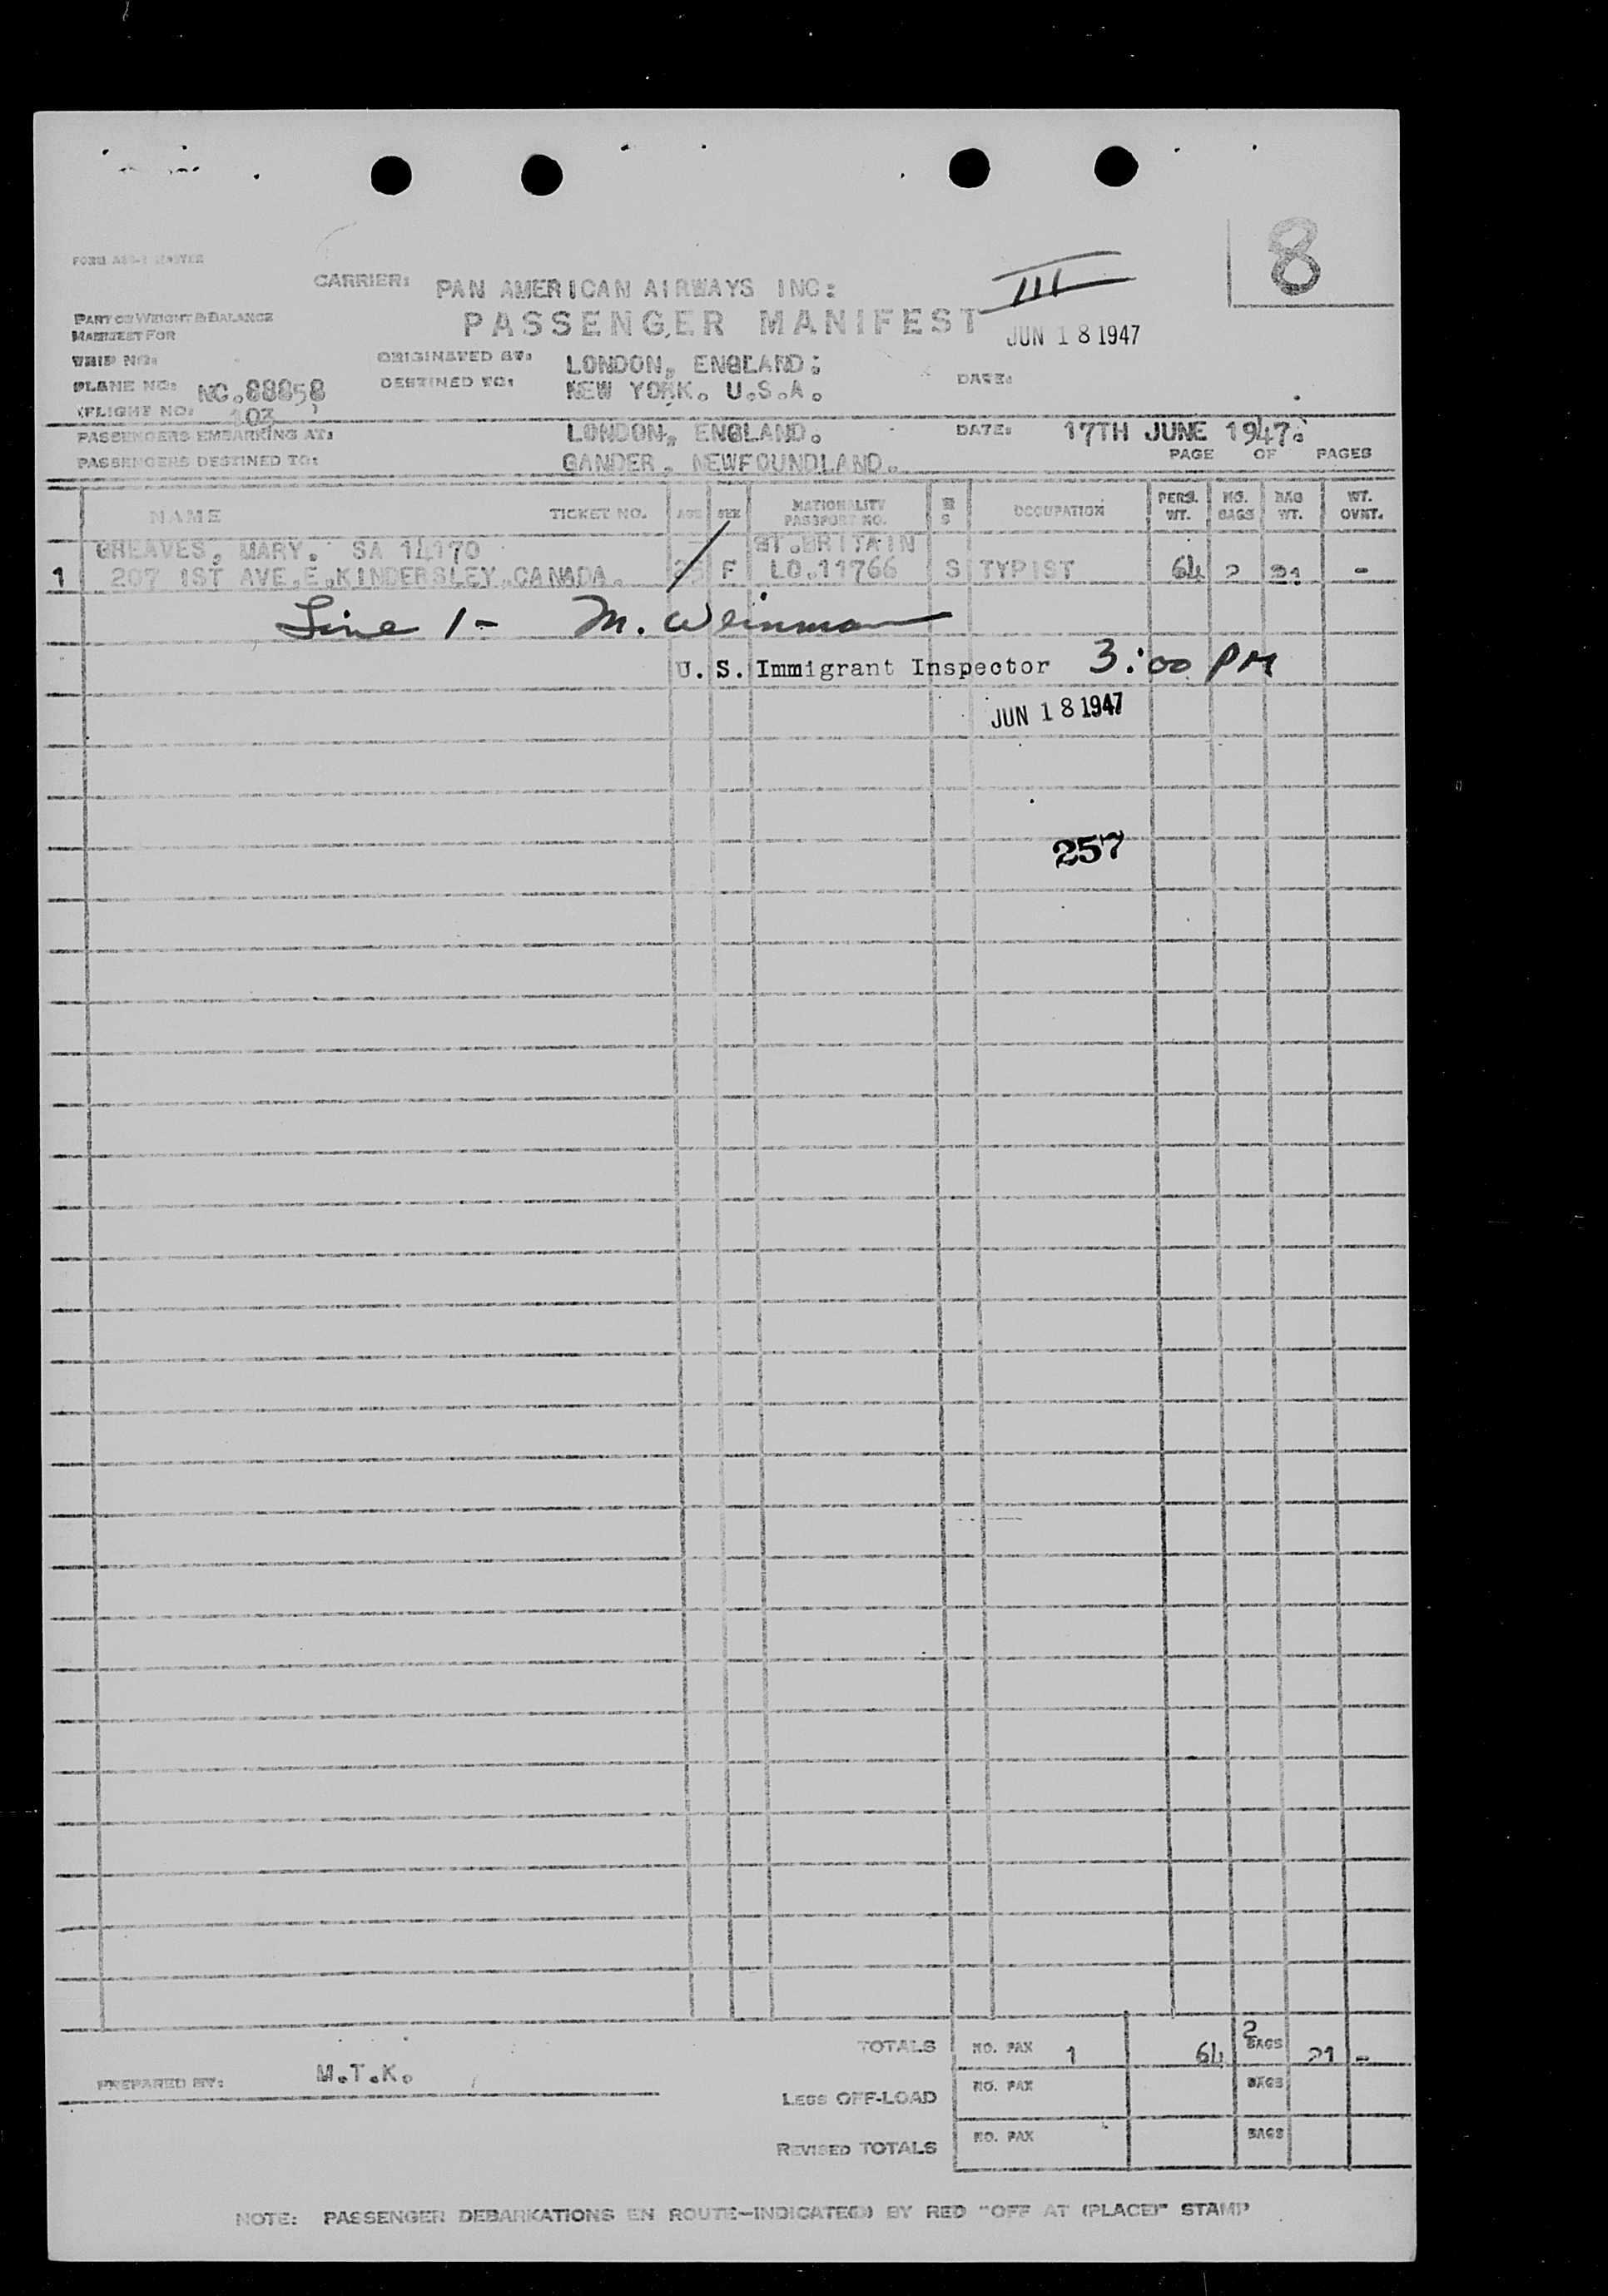 8
CARRIER: PAN AMERICAN AIRWAYS INC:
III
PART OF WEIGHT & BALANCE
MANIFEST FOR
PASSENGER MANIFEST
JUN 18 1947
TRIP NO:
ORIGINATED AT: LONDON, ENGLAND:
PLANE NO: NC.88858
DESTINED TO: NEW YORK. U.S.A.
DATE:
(FLIGHT NO: 103 )
PASSENGERS EMBARKING AT: LONDON, ENGLAND. DATE: 17TH JUNE 1947.
PASSENGERS DESTINED TO: GANDER, NEWFOUNDLAND. PAGE OF PAGES
NAME TICKET NO. AGE SEX NATIONALITY PASSPORT NO. M S OCCUPATION PERS. WT. NO. BAGS BAG WT. WT. OVNT.
GREAVES, MARY. SA 14170 GT.BRITAIN
1 207 1ST AVE.E.KINDERSLEY.CANADA. F LO.11766 S TYPIST 64 2 21 -
Line 1- M. Weinman
U. S. Immigrant Inspector 3:00 PM
JUN 18 1947
257
TOTALS NO. PAX 1 64 2 BAGS 21 -
PREPARED BY: M.T.K.
LESS OFF-LOAD NO. PAX BAGS
REVISED TOTALS NO. PAX BAGS
NOTE: PASSENGER DEBARKATIONS EN ROUTE-INDICATE(D) BY RED "OFF AT (PLACE)" STAMP